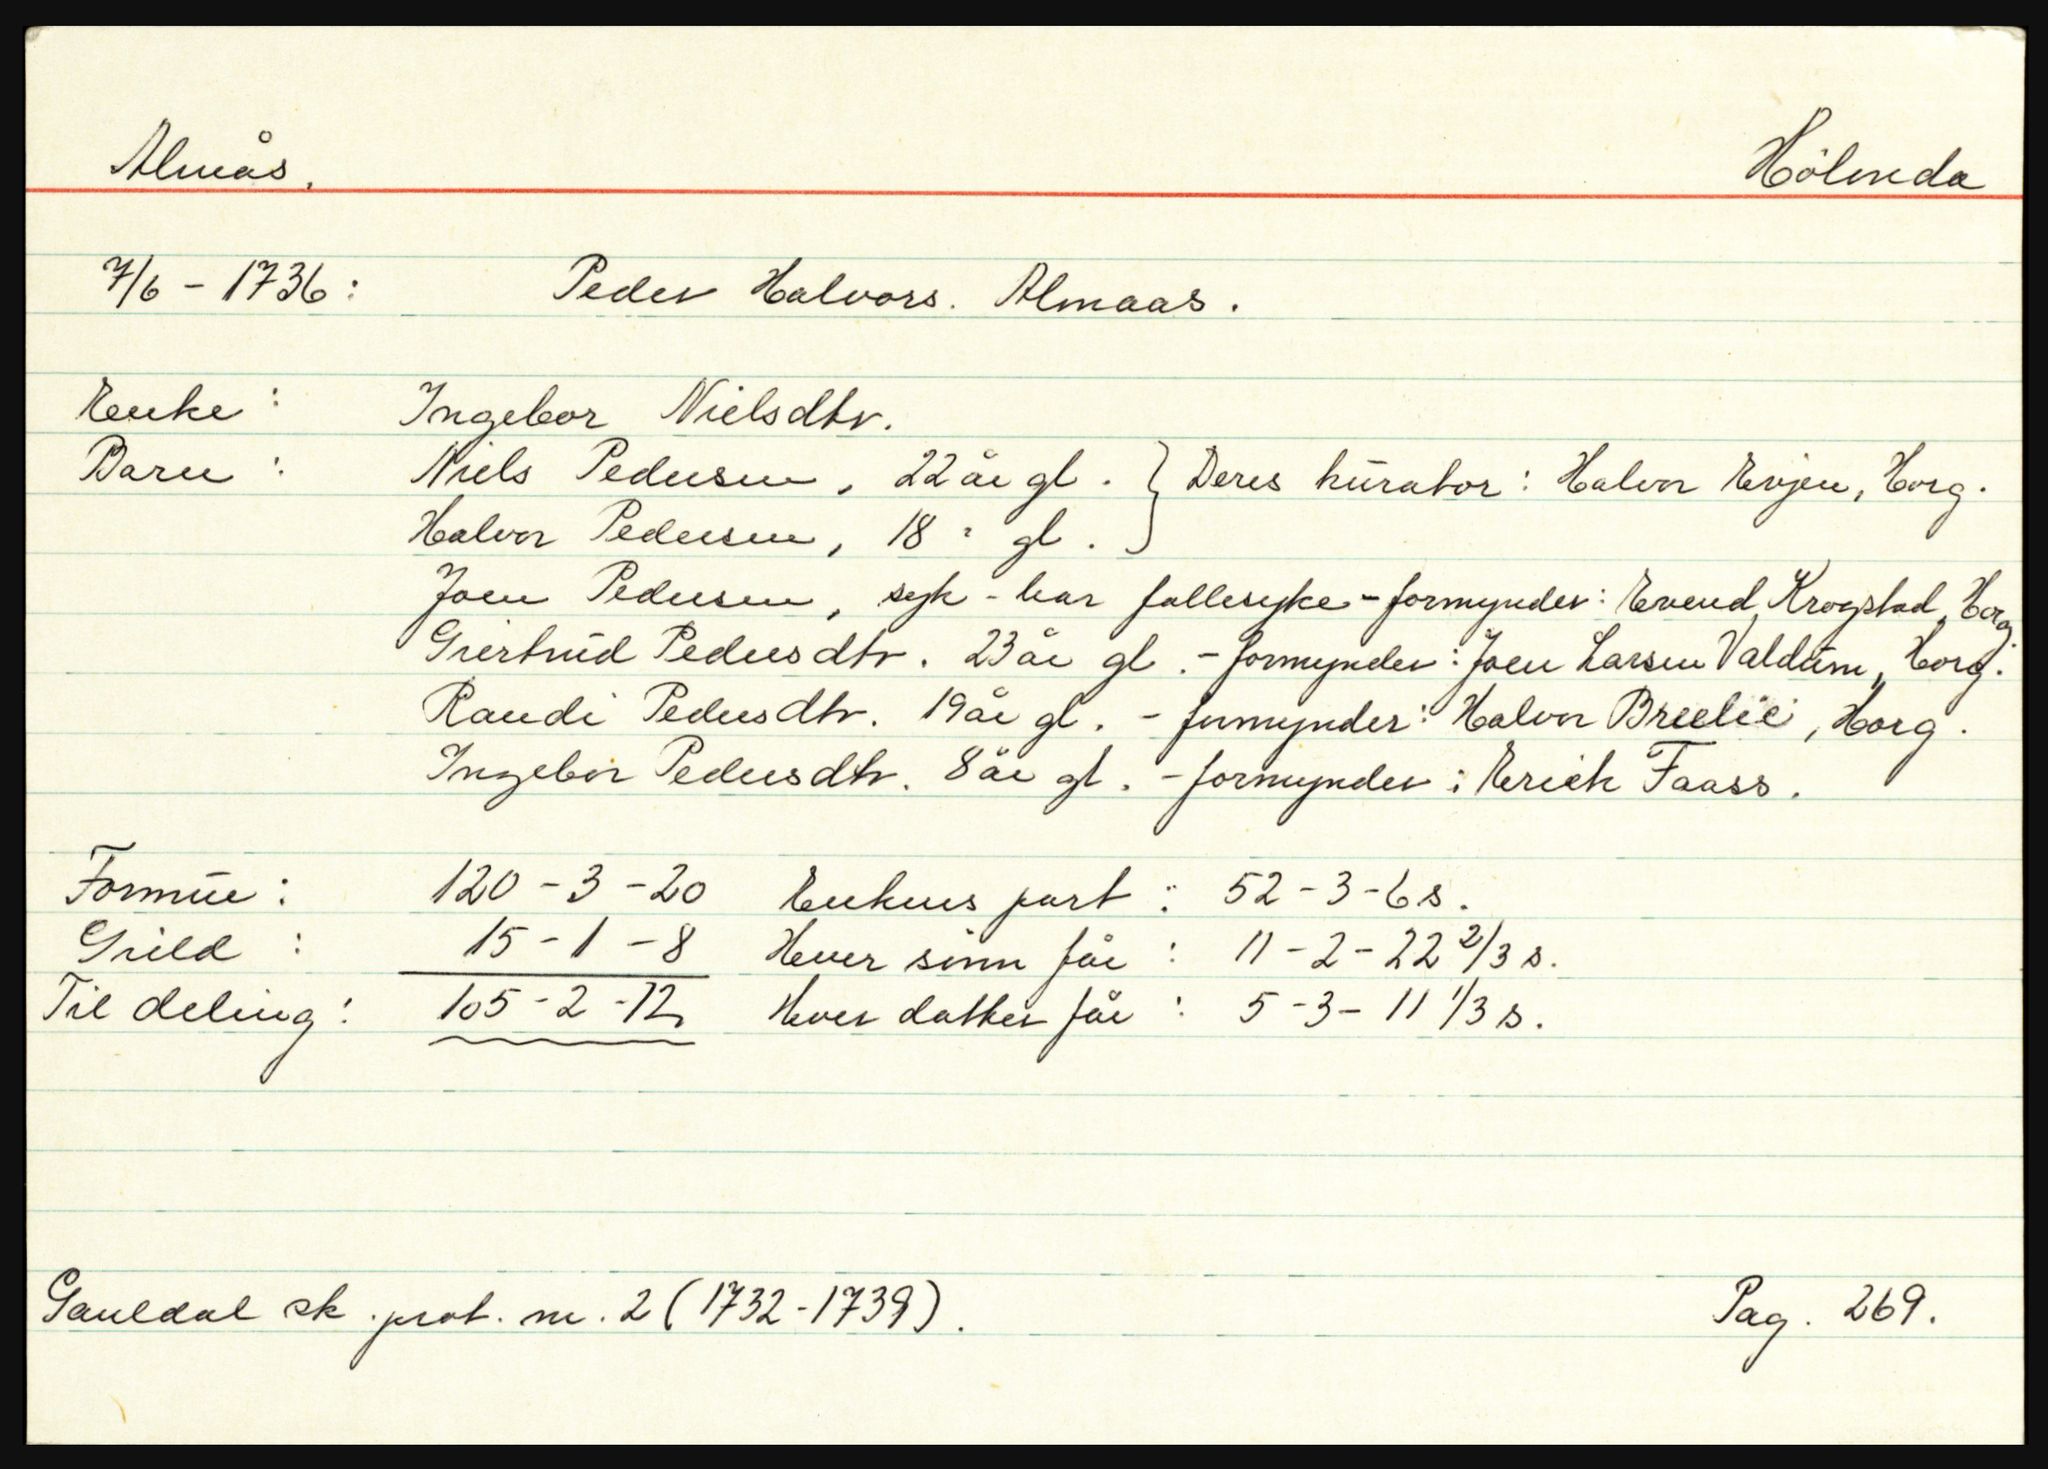 Almås. Hölmda
7/6 - 1736: Peder Halvors. Almaas.
Enke: Ingebor Nielsdtr.
Barn: Niels Pedersen, 22 år gl. } Deres kurator: Halvor Evjen, Horg.
Halvor Pedersen, 18 " gl.
Joen Pedersen, syk - har fallesyke - formynder: Evend Krogstad, Horg.
Giertrud Pedersdtr. 23 år gl. - formynder: Joen Larsen Valdum, Horg.
Randi Pedersdtr. 19 år gl. - formynder: Halvor Breelie, Horg.
Ingebor Pedersdtr. 8 år gl. - formynder: Erich Faass.
Formue: 120 - 3 - 20 Enkens part: 52 - 3 - 6 s.
Gield: 15 - 1 - 8 Hver sønn får: 11 - 2 - 22 2/3 s.
Til deling: 105 - 2 - 12 Hver datter får: 5 - 3 - 11 1/3 s.
Gauldal sk. prot. nr. 2 (1732-1739). Pag. 269.